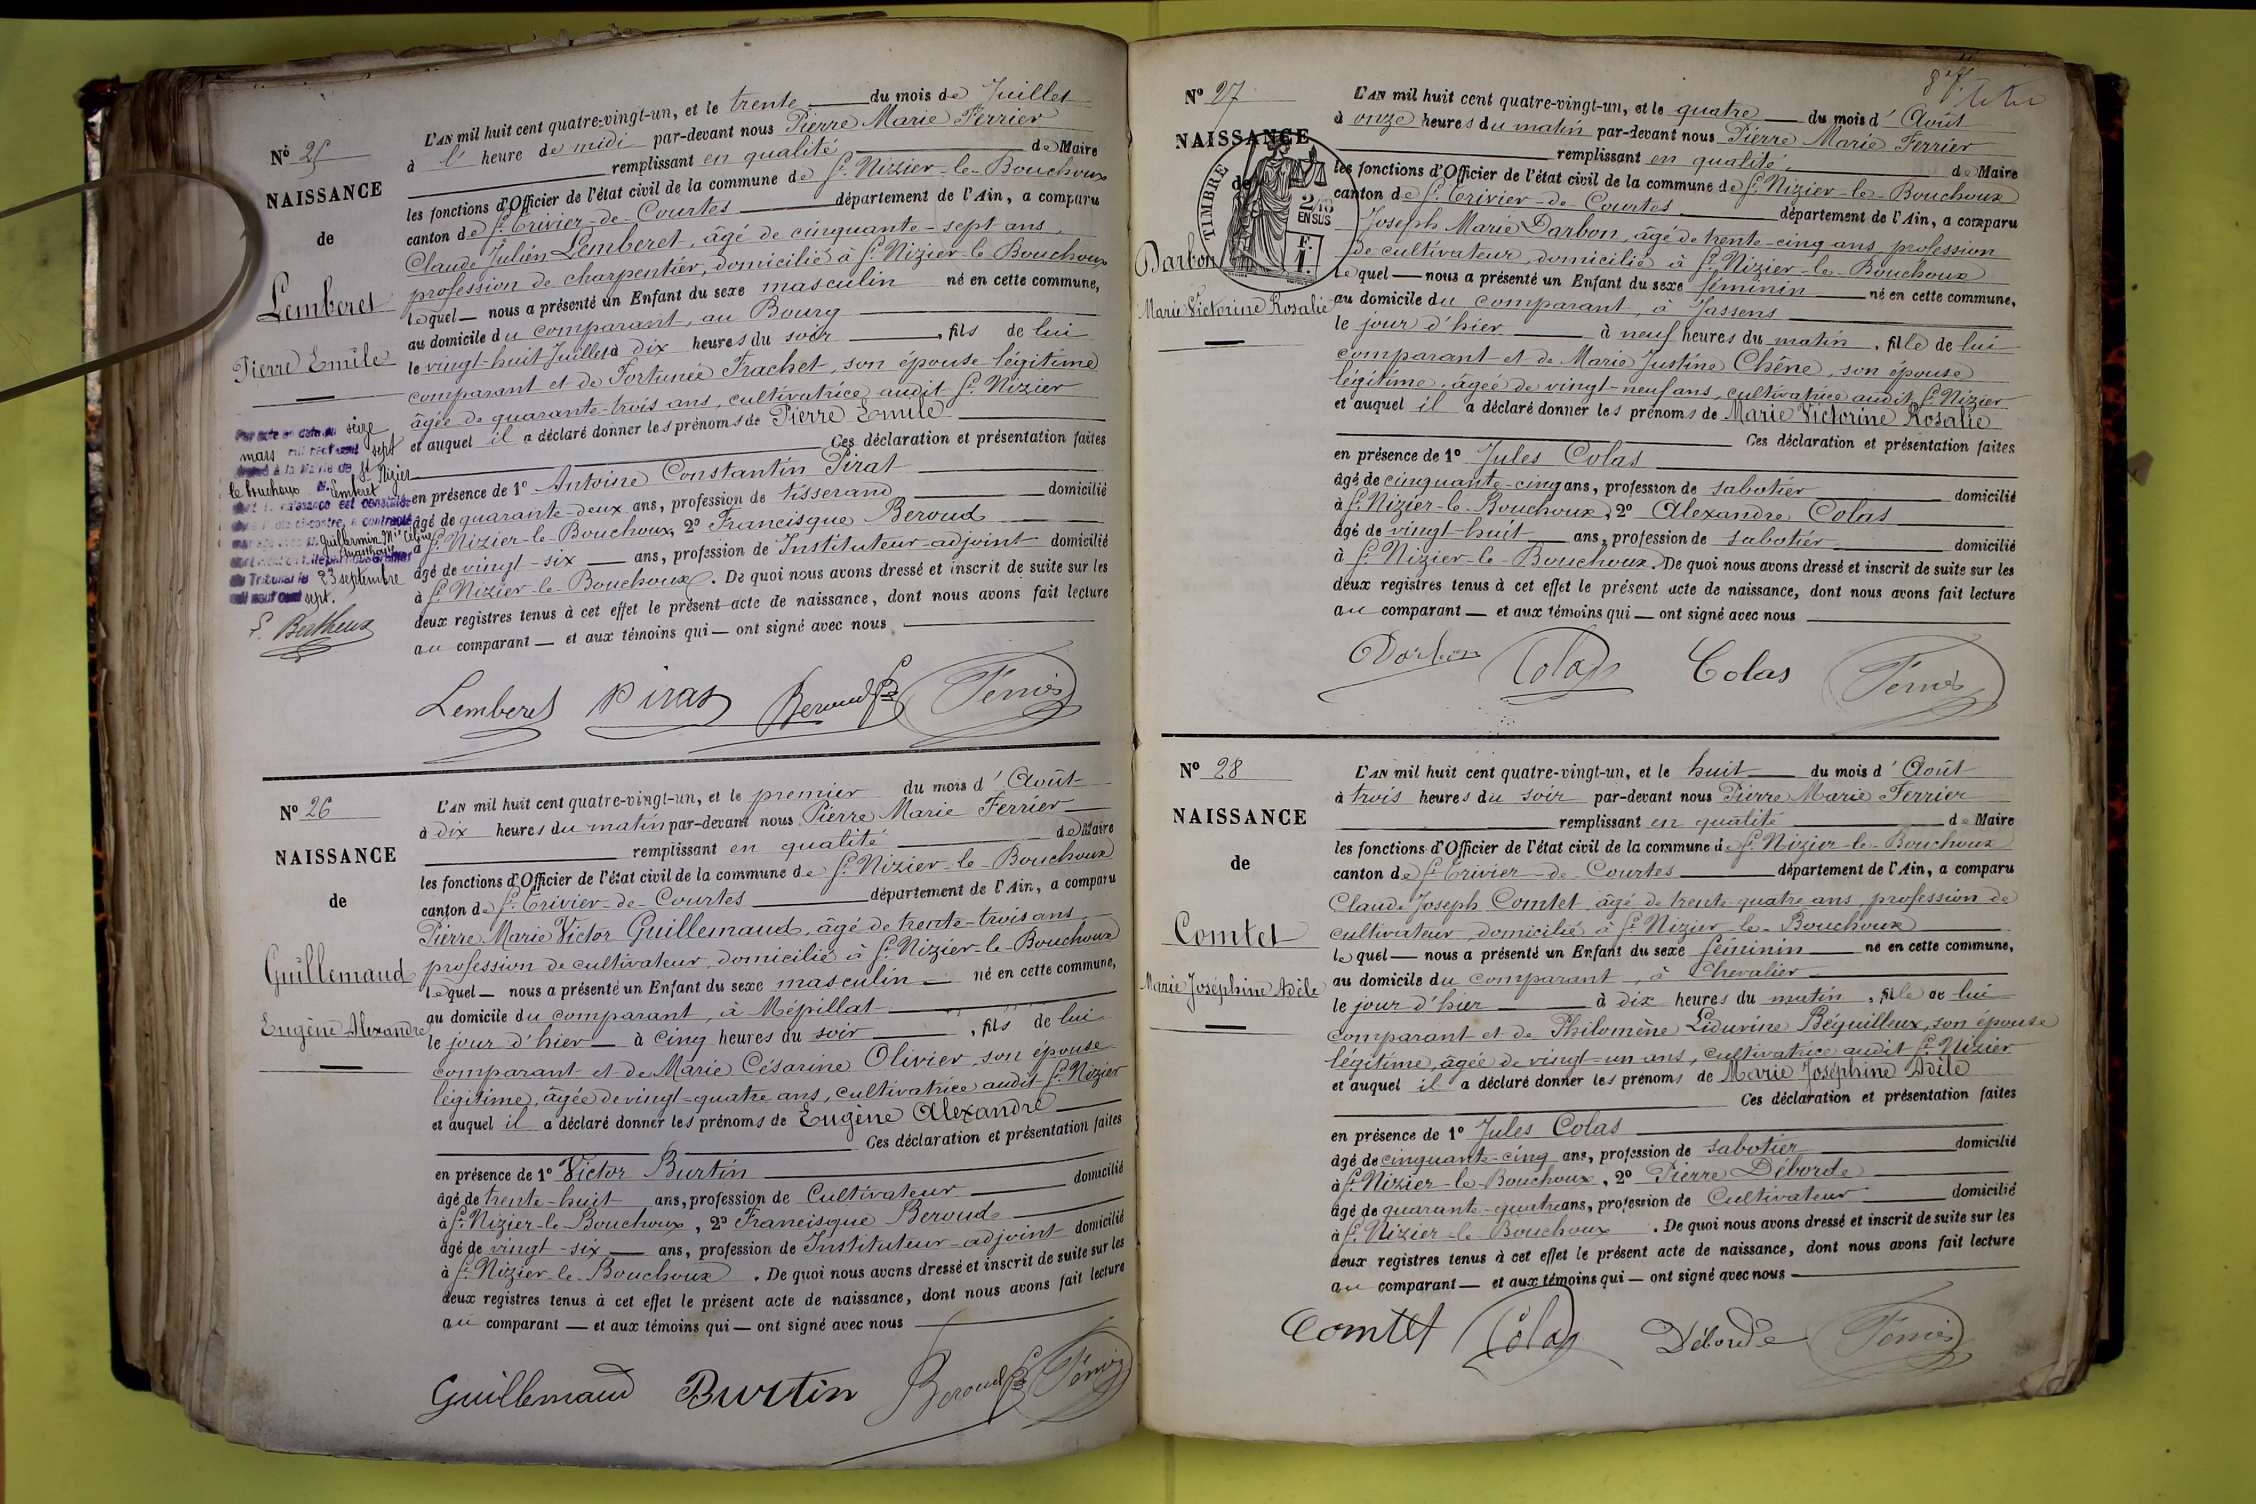 Nº 25
NAISSANCE
de
Lemberet
Pierre Emile
Par acte en date du seize
mars mil neuf cent sept
à la Mairie de St Nizier
le Bouchoux M. Lemberet
dont la naissance est constatée
ci-contre, a contracté
mariage avec Guillermin Mie Céline
23 septembre
mil neuf cent sept.
L'AN mil huit cent quatre-vingt-un, et le trente du mois de Juillet
à l' heure de midi par-devant nous Pierre Marie Ferrier
remplissant en qualité de Maire
les fonctions d'Officier de l'état civil de la commune de St Nizier-le-Bouchoux
canton de St Trivier-de-Courtes département de l'Ain, a comparu
Claude Julien Lemberet, âgé de cinquante-sept ans,
profession de charpentier, domicilié à St Nizier-le-Bouchoux
lequel nous a présenté un Enfant du sexe masculin né en cette commune,
au domicile du comparant, au Bourg
le vingt-huit Juillet à dix heures du soir, fils de lui
comparant et de Fortunée Frachet, son épouse légitime
âgée de quarante-trois ans, cultivatrice audit St Nizier
et auquel il a déclaré donner les prénoms de Pierre Emile
Ces déclaration et présentation faites
en présence de 1º Antoine Constantin Pirat
âgé de quarante-deux ans, profession de tisserand domicilié
à St Nizier-le-Bouchoux, 2º Francisque Beroud
âgé de vingt-six ans, profession de Instituteur-adjoint domicilié
à St Nizier-le-Bouchoux. De quoi nous avons dressé et inscrit de suite sur les
deux registres tenus à cet effet le présent acte de naissance, dont nous avons fait lecture
au comparant et aux témoins qui ont signé avec nous
Lemberet Pirat Beroud Fe Ferrier
Nº 26
NAISSANCE
de
Guillemaud
Eugène Alexandre
L'AN mil huit cent quatre-vingt-un, et le premier du mois d'Août
à dix heures du matin par-devant nous Pierre Marie Ferrier
remplissant en qualité de Maire
les fonctions d'Officier de l'état civil de la commune de St Nizier-le-Bouchoux
canton de St Trivier-de-Courtes département de l'Ain, a comparu
Pierre Marie Victor Guillemaud, âgé de trente-trois ans
profession de cultivateur, domicilié à St Nizier-le-Bouchoux
lequel nous a présenté un Enfant du sexe masculin né en cette commune,
au domicile du comparant, à Mépillat
le jour d'hier à cinq heures du soir, fils de lui
comparant et de Marie Césarine Olivier, son épouse
légitime, âgée de vingt-quatre ans, cultivatrice audit St Nizier
et auquel il a déclaré donner les prénoms de Eugène Alexandre
Ces déclaration et présentation faites
en présence de 1º Victor Burtin
âgé de trente-huit ans, profession de Cultivateur domicilié
à St Nizier-le-Bouchoux, 2º Francisque Beroud
âgé de vingt-six ans, profession de Instituteur-adjoint domicilié
à St Nizier-le-Bouchoux. De quoi nous avons dressé et inscrit de suite sur les
deux registres tenus à cet effet le présent acte de naissance, dont nous avons fait lecture
au comparant et aux témoins qui ont signé avec nous
Guillemaud Burtin Beroud Fe Ferrier
Nº 27
NAISSANCE
de
TIMBRE
2/10
EN SUS
F.
1.
Darbon
Marie Victorine Rosalie
L'AN mil huit cent quatre-vingt-un, et le quatre du mois d'Août
à onze heures du matin par-devant nous Pierre Marie Ferrier
remplissant en qualité de Maire
les fonctions d'Officier de l'état civil de la commune de St Nizier-le-Bouchoux
canton de St Trivier-de-Courtes département de l'Ain, a comparu
Joseph Marie Darbon, âgé de trente-cinq ans, profession
de cultivateur, domicilié à St Nizier-le-Bouchoux
lequel nous a présenté un Enfant du sexe féminin né en cette commune,
au domicile du comparant, à Jassens
le jour d'hier à neuf heures du matin, fille de lui
comparant et de Marie Justine Chêne, son épouse
légitime, âgée de vingt-neuf ans, cultivatrice audit St Nizier
et auquel il a déclaré donner les prénoms de Marie Victorine Rosalie
Ces déclaration et présentation faites
en présence de 1º Jules Colas
âgé de cinquante-cinq ans, profession de sabotier domicilié
à St Nizier-le-Bouchoux, 2º Alexandre Colas
âgé de vingt-huit ans, profession de sabotier domicilié
à St Nizier-le-Bouchoux. De quoi nous avons dressé et inscrit de suite sur les
deux registres tenus à cet effet le présent acte de naissance, dont nous avons fait lecture
au comparant et aux témoins qui ont signé avec nous
Darbon Colas Colas Ferrier
Nº 28
NAISSANCE
de
Comtet
Marie Joséphine Adèle
L'AN mil huit cent quatre-vingt-un, et le huit du mois d'Août
à trois heures du soir par-devant nous Pierre Marie Ferrier
remplissant en qualité de Maire
les fonctions d'Officier de l'état civil de la commune de St Nizier-le-Bouchoux
canton de St Trivier-de-Courtes département de l'Ain, a comparu
Claude Joseph Comtet, âgé de trente-quatre ans, profession de
cultivateur, domicilié à St Nizier-le-Bouchoux
lequel nous a présenté un Enfant du sexe féminin né en cette commune,
au domicile du comparant, à Chevalier
le jour d'hier à dix heures du matin, fille de lui
comparant et de Philomène Liduvine Béguilleux, son épouse
légitime, âgée de vingt-un ans, cultivatrice audit St Nizier
et auquel il a déclaré donner les prénoms de Marie Joséphine Adèle
Ces déclaration et présentation faites
en présence de 1º Jules Colas
âgé de cinquante-cinq ans, profession de sabotier domicilié
à St Nizier-le-Bouchoux, 2º Pierre Déborde
âgé de quarante-quatre ans, profession de Cultivateur domicilié
à St Nizier-le-Bouchoux. De quoi nous avons dressé et inscrit de suite sur les
deux registres tenus à cet effet le présent acte de naissance, dont nous avons fait lecture
au comparant et aux témoins qui ont signé avec nous
Comtet Colas Déborde Ferrier